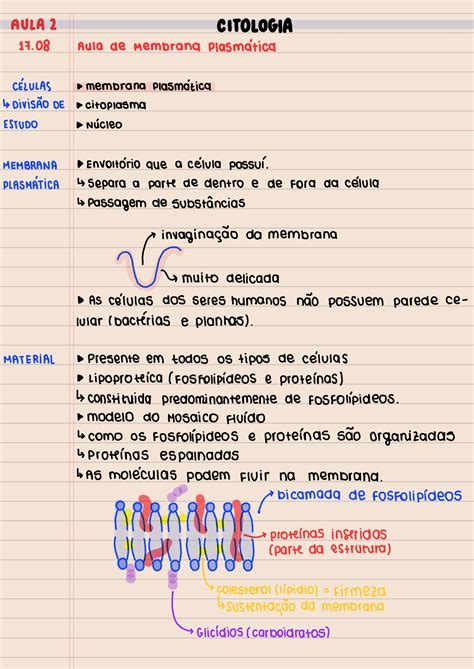 AULA 2 CITOLOGIA
17.08 Aula de Membrana Plasmática
CÉLULAS ▸ membrana Plasmática
↳ DIVISÃO DE ▸ citoplasma
ESTUDO ▸ Núcleo
MEMBRANA ▸ Envoltório que a célula possuí.
PLASMÁTICA ↳ Separa a parte de dentro e de fora da célula
↳ Passagem de substâncias
→ invaginação da membrana
→ muito delicada
▸ As células dos seres humanos não possuem parede ce-
lular (bactérias e plantas).
MATERIAL ▸ Presente em todos os tipos de células
▸ Lipoproteica (Fosfolipídeos e proteínas)
↳ constituida predominantemente de Fosfolipídeos.
▸ modelo do Mosaico Fluído
↳ como os Fosfolipídeos e proteínas são organizadas
↳ Proteínas espalhadas
↳ As moléculas podem Fluir na membrana.
→ bicamada de Fosfolipídeos
→ proteínas inseridas
(parte da estrutura)
→ colesterol (lipídio) = Firmeza
↳ Sustentação da membrana
→ Glicídios (carboidratos)